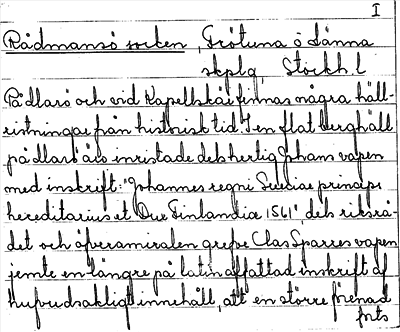 I
Rådmansö socken, Frötuna o Länna
skplg, Stockh. l
På dlarö och vid Kapellskär finnas några häll-
ristningar från historisk tid. I en flat berghäll
på dlarö äro inristade dels hertig Johans vapen
med inskrift: "Johannes regni Sueciae princips
hereditarius et Dux Finlandiæ 1561", dels riksrå-
det och öfveramiralen grefve Clas Sparres vapen
jemte en längre på latin affattad inskrift af
hufvudsakligt innehåll, att en större förenad
forts